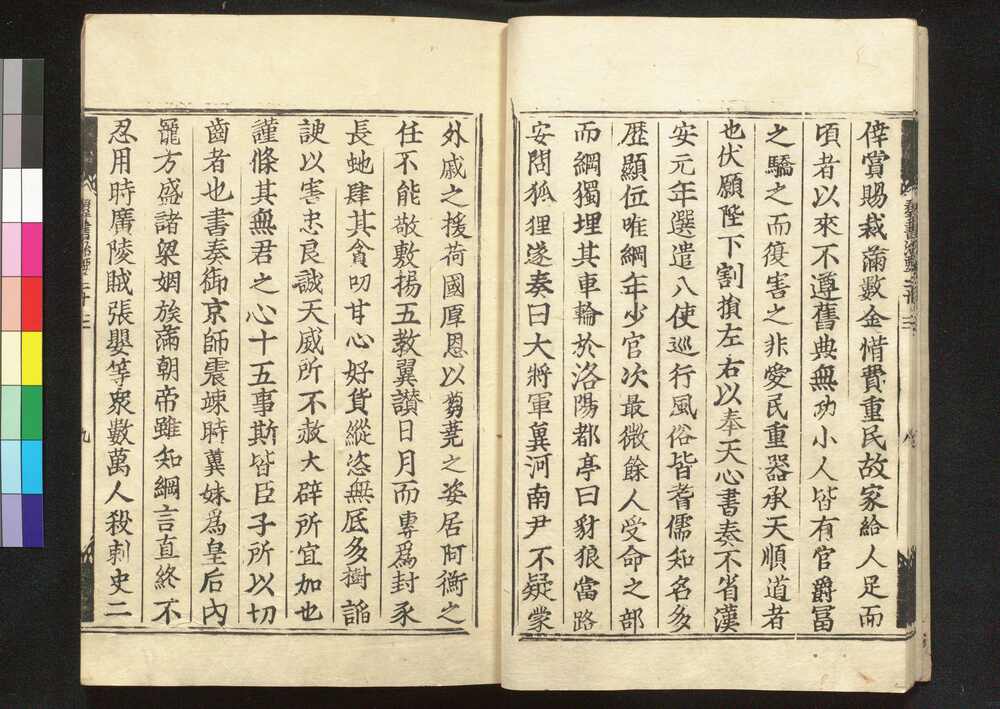 倖賞賜裁滿數金惜費重民故家給人足而
頃者以來不遵舊典無功小人皆有官爵冨
之驕之而復害之非愛民重器承天順道者
也伏願陛下割損左右以奉天心書奏不省漢
安元年選遣八使巡行風俗皆耆儒知名多
歷顯位唯綱年少官次最微餘人受命之部
而綱獨埋其車輪於洛陽都亭曰豺狼當路
安問狐狸遂奏曰大將軍冀河南尹不疑蒙
外戚之援荷國厚恩以芻蕘之姿居阿衡之
任不能敬敷揚五教翼讃日月而專爲封豕
長虵肆其貪叨甘心好貨縱恣無厎多樹諂
諛以害忠良誠天威所不赦大辟所宜加也
謹條其無君之心十五事斯皆臣子所以切
齒者也書奏御京師震竦時冀妹爲皇后內
寵方盛諸梁姻族滿朝帝雖知綱言直終不
忍用時廣陵賊張嬰等衆數萬人殺刺史二
九